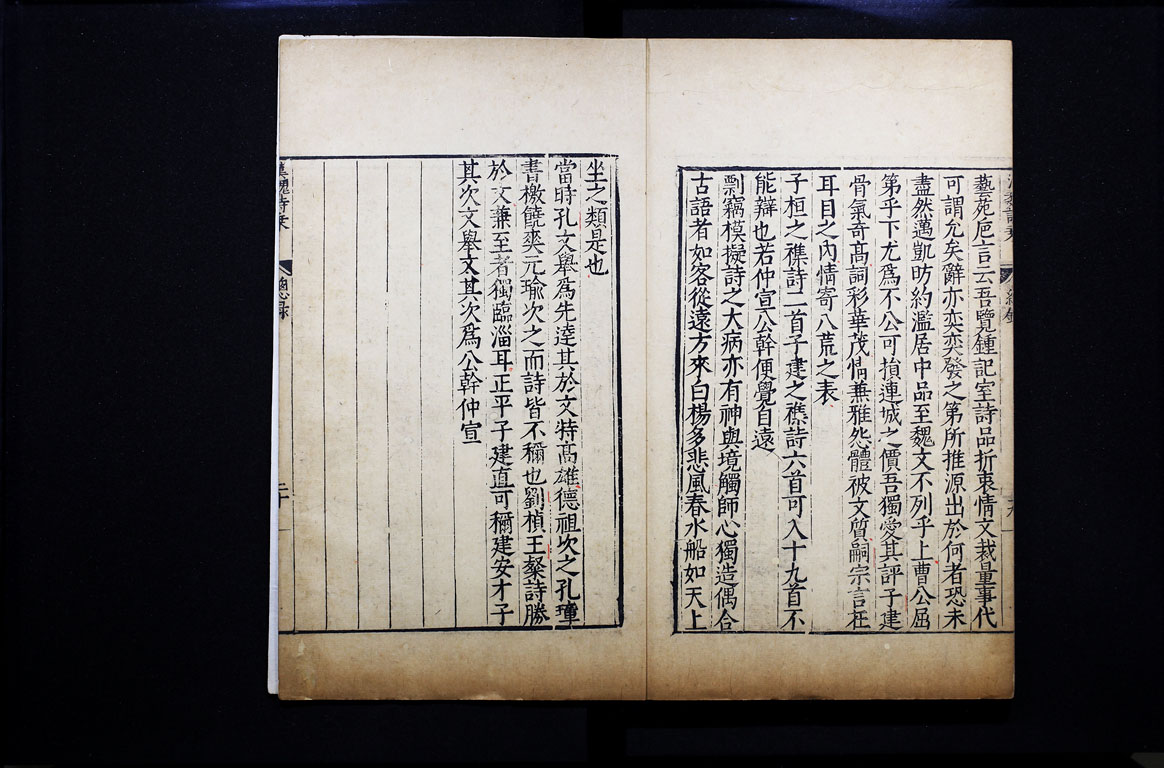 藝苑巵言云吾覽鍾記室詩品折衷情文裁量事代
可謂允矣辭亦奕奕發之第所推源出於何者恐未
盡然邁凱昉約濫居中品至魏文不列乎上曹公屈
第乎下尤爲不公可損連城之價吾獨愛其評子建
骨氣奇髙詞彩華茂情兼雅怨體被文質嗣宗言在
耳目之內情寄八荒之表
子桓之襍詩二首子建之襍詩六首可入十九首不
能辯也若仲宣公幹便覺自遠
剽竊模擬詩之大病亦有神與境觸師心獨造偶合
古語者如客從遠方來白楊多悲風春水船如天上
坐之類是也
當時孔文舉爲先達其於文特髙雄德祖次之孔璋
書檄饒爽元瑜次之而詩皆不稱也劉楨王粲詩勝
於文兼至者獨臨淄耳正平子建直可稱建安才子
其次文舉文其次爲公幹仲宣
漢魏詩乗
總录
二十